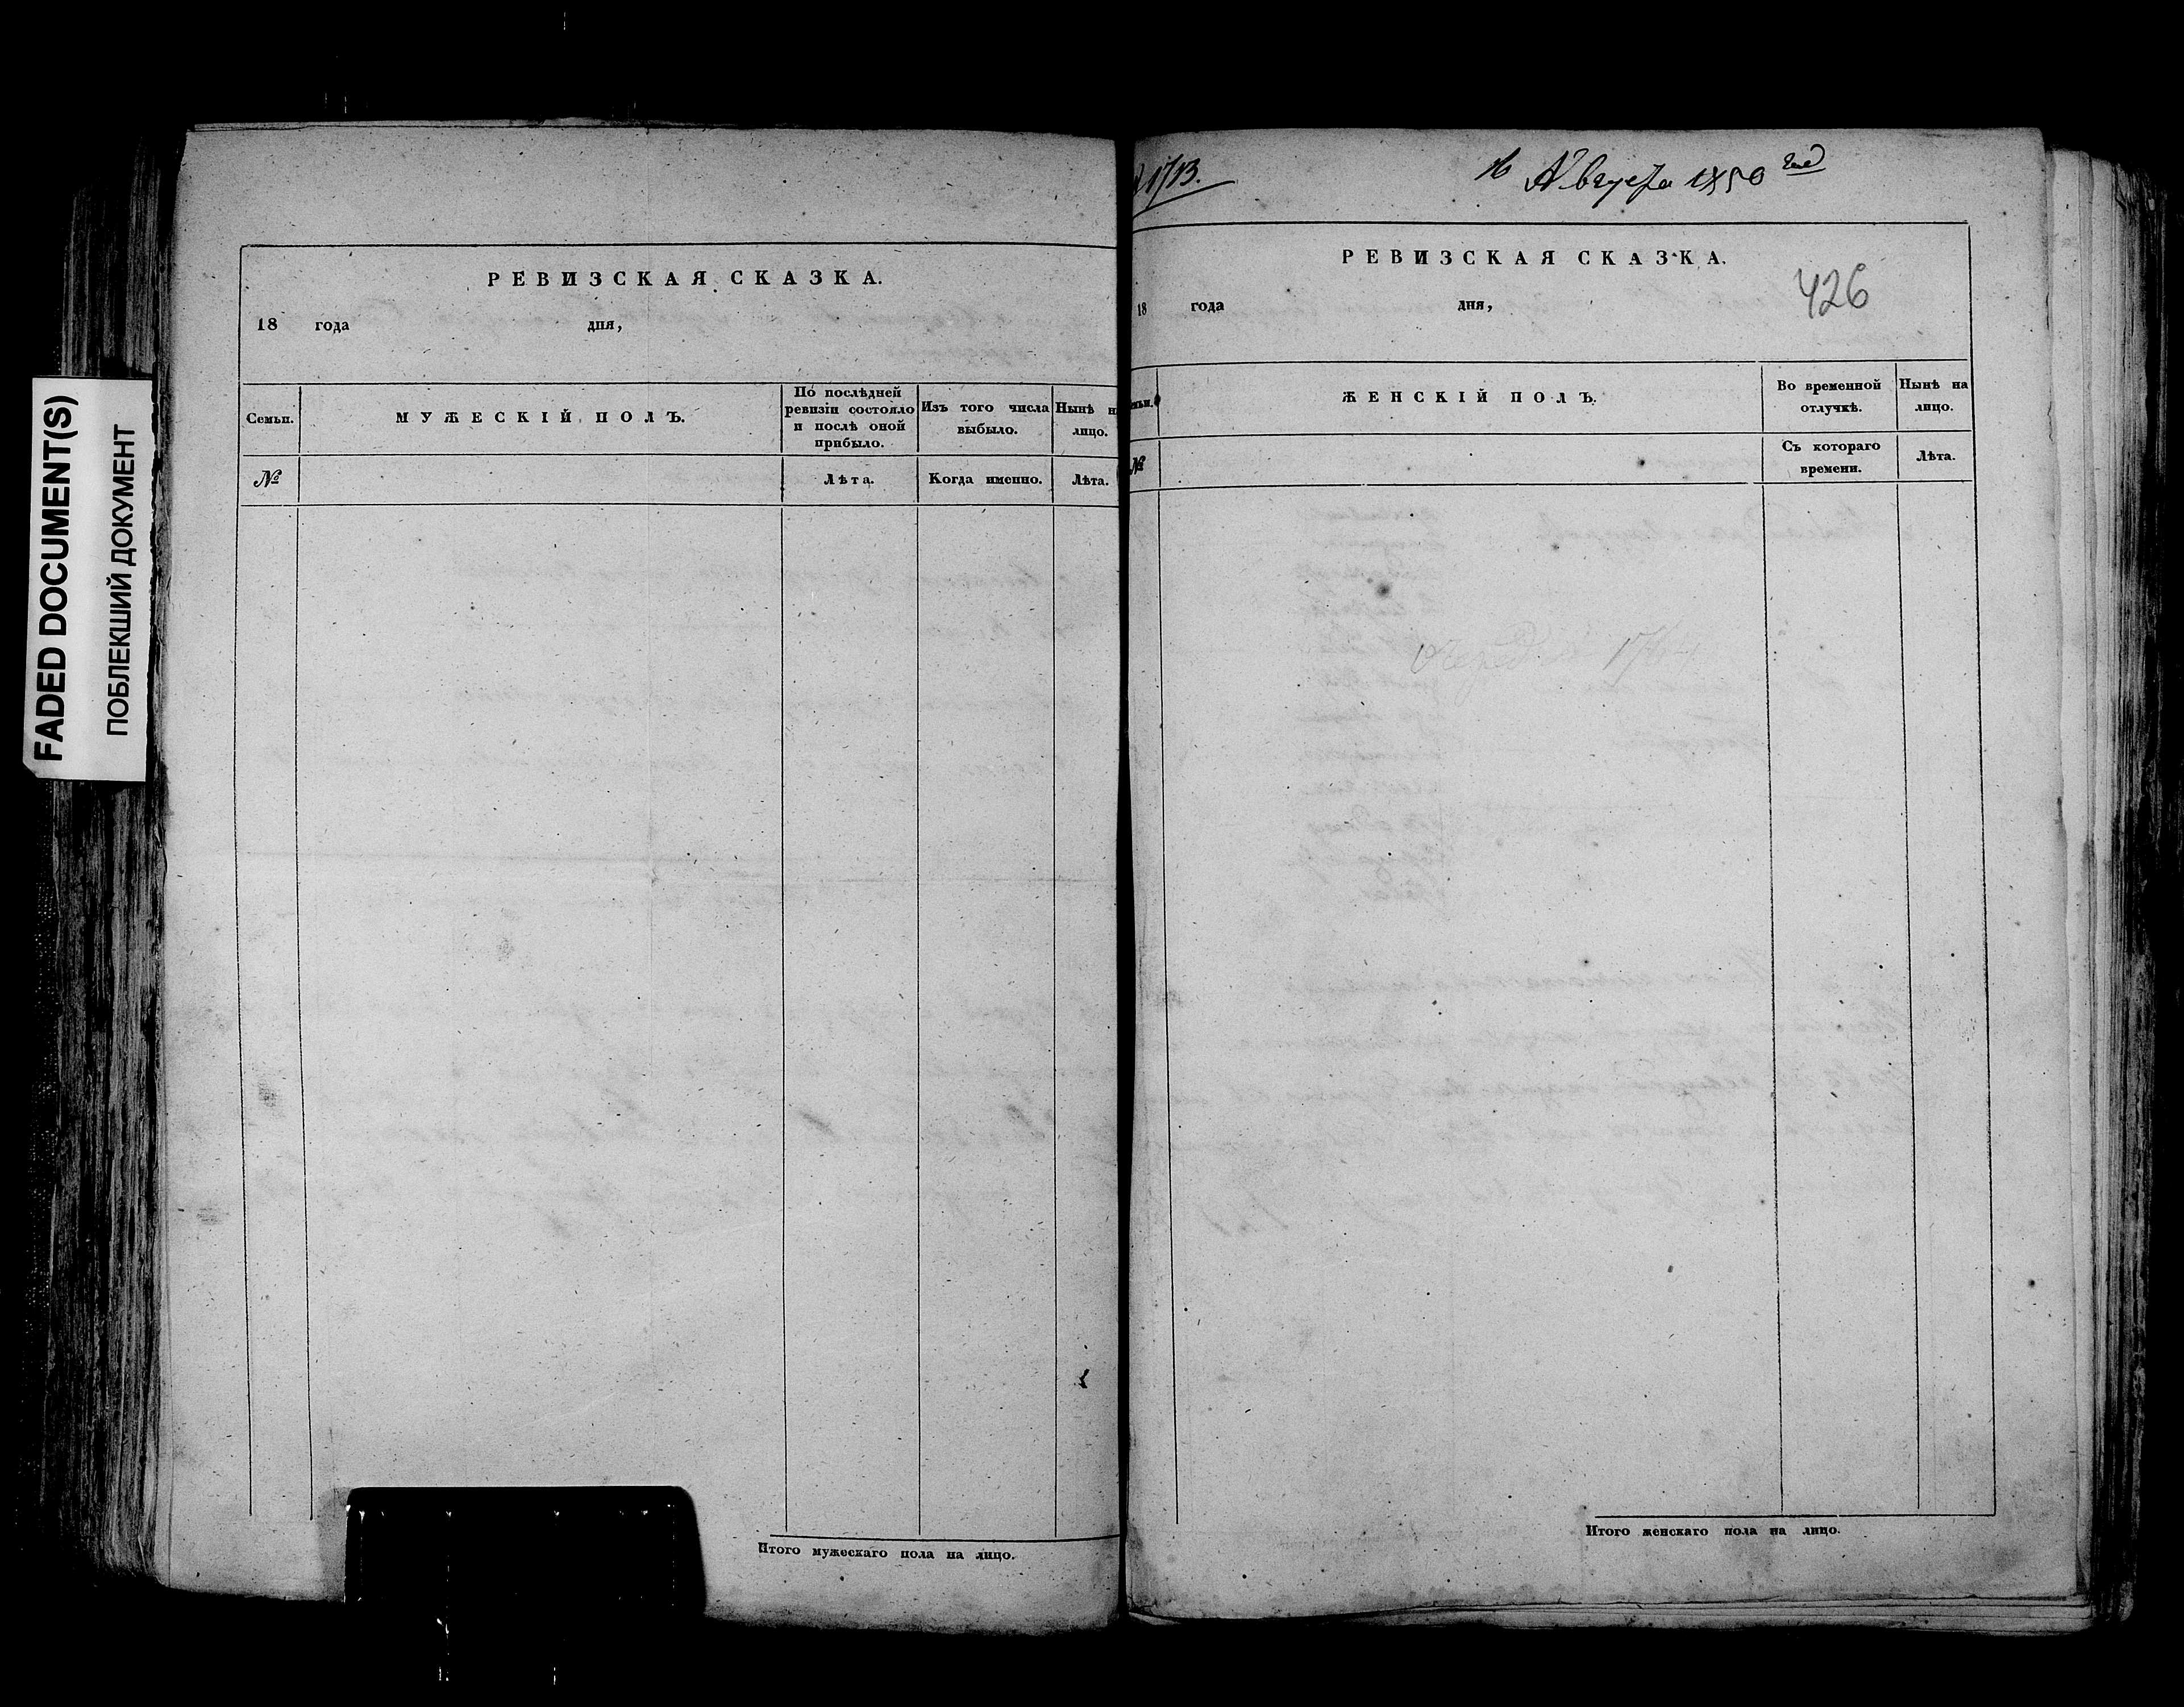 FADED DOCUMENT(S)
ПОБЛЕКШИЙ ДОКУМЕНТ
РЕВИЗСКАЯ СКАЗКА.
18 года дня,
Семьи.
МУЖЕСКІЙ ПОЛЪ.
По послѣдней
ревизіи состояло
и послѣ оной
прибыло.
Изъ того числа
выбыло.
Нынѣ н
лицо.
№
Лѣта.
Когда именно.
Лѣта.
Итого мужескаго пола на лицо.
1713.
16 Августа 1850 года
РЕВИЗСКАЯ СКАЗКА.
426
18 года дня,
ЖЕНСКІЙ ПОЛЪ.
Во временной
отлучкѣ.
Нынѣ на
лицо.
№
Съ котораго
времени.
Лѣта.
Итого женскаго пола на лицо.